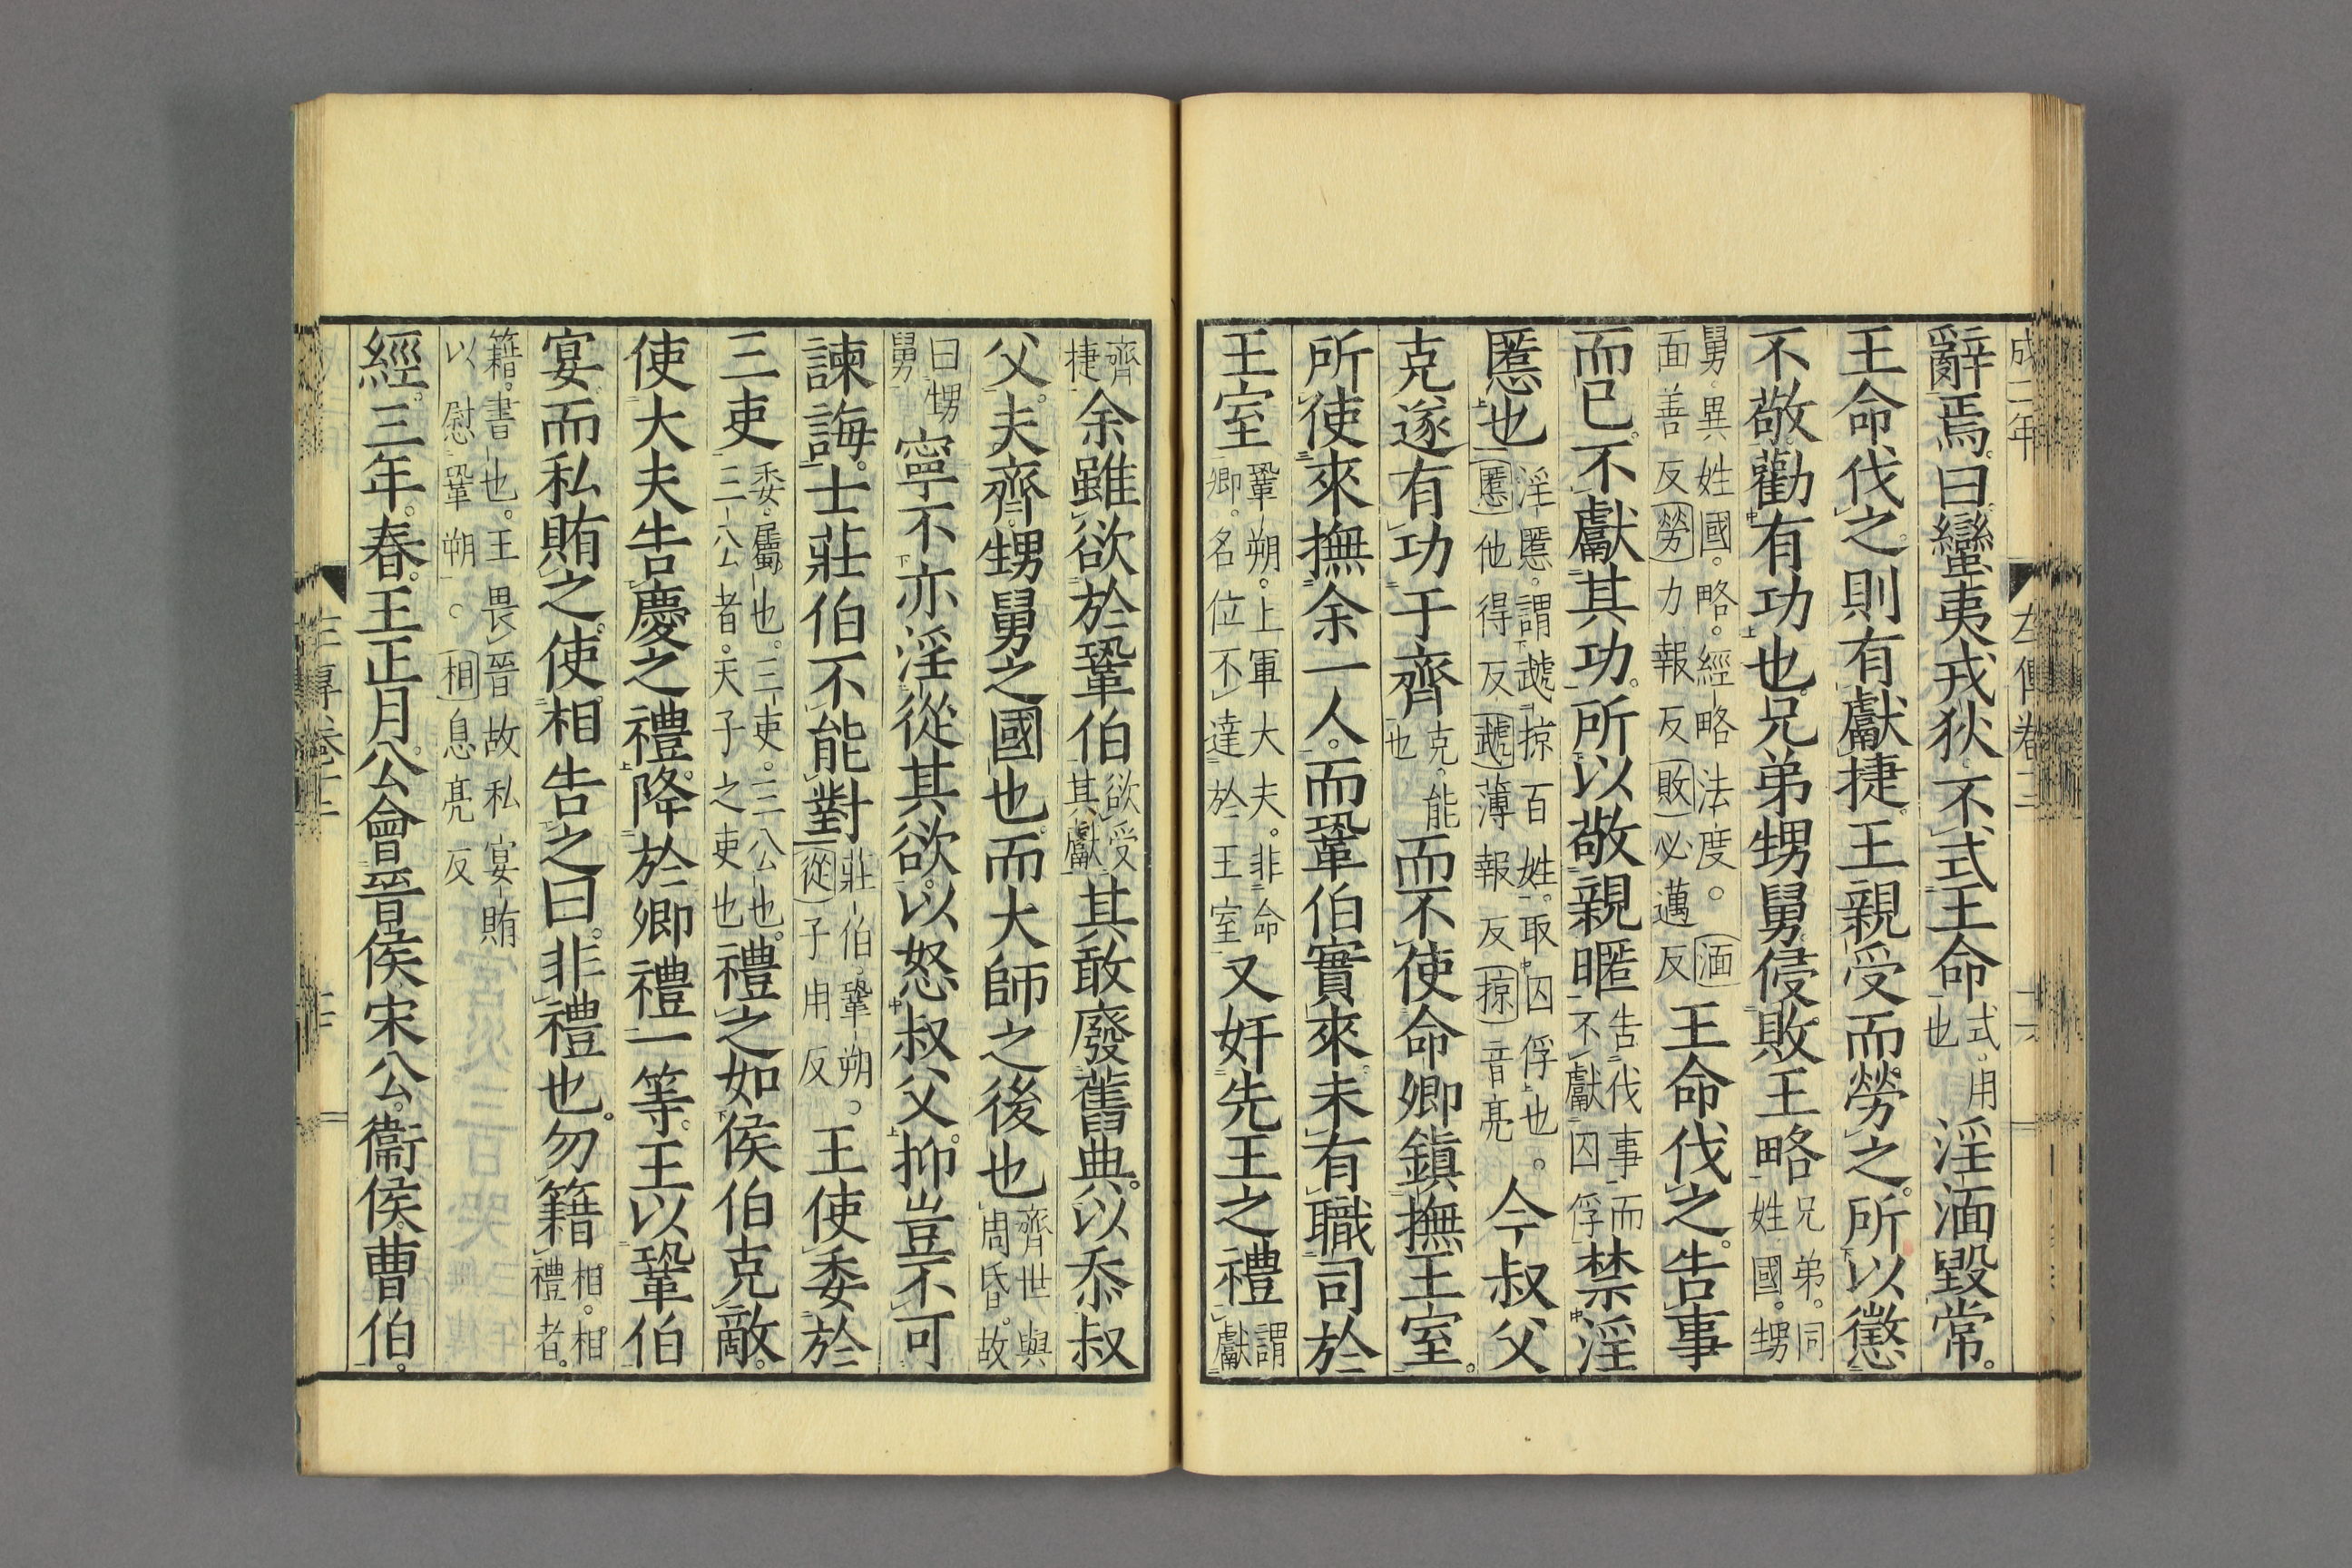 成二年 左傳卷
辭焉曰蠻夷戎狄不式王命式用也淫湎毀常
王命伐之則有獻捷王親受而勞之所以懲
不敬勸有功也兄弟甥舅侵敗王略兄弟同姓國甥
舅異姓國略經略法度湎面善反勞力報反敗必邁反王命伐之告事
而已不獻其功所以敬親暱告伐事而不獻囚俘禁淫
慝也淫慝謂虣掠百姓取囚俘也慝他得反虣薄報反掠音亮今叔父
克遂有功于齊克能也而不使命卿鎮撫王室
所使來撫余一人而鞏伯實來未有職司於
王室鞏朔上軍大夫非命卿名位不達於王室又奸先王之禮謂獻
齊捷余雖欲於鞏伯欲受其獻其敢廢舊典以忝叔
父夫齊甥舅之國也而大師之後也齊世與周昏故
曰甥舅寧不亦淫從其欲以怒叔父抑豈不可
諫誨士莊伯不能對莊伯鞏朔從子用反王使委於
三吏委屬也三吏三公也三公者天子之吏也禮之如侯伯克敵
使大夫告慶之禮降於卿禮一等王以鞏伯
宴而私賄之使相告之曰非禮也勿籍相相禮者
籍書也王畏晉故私宴賄以慰鞏朔相息亮反
經三年春王正月公會晉侯宋公衞侯曹伯